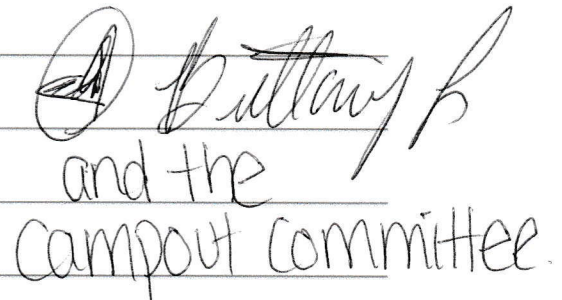 Brittany L
and the
campout committee.